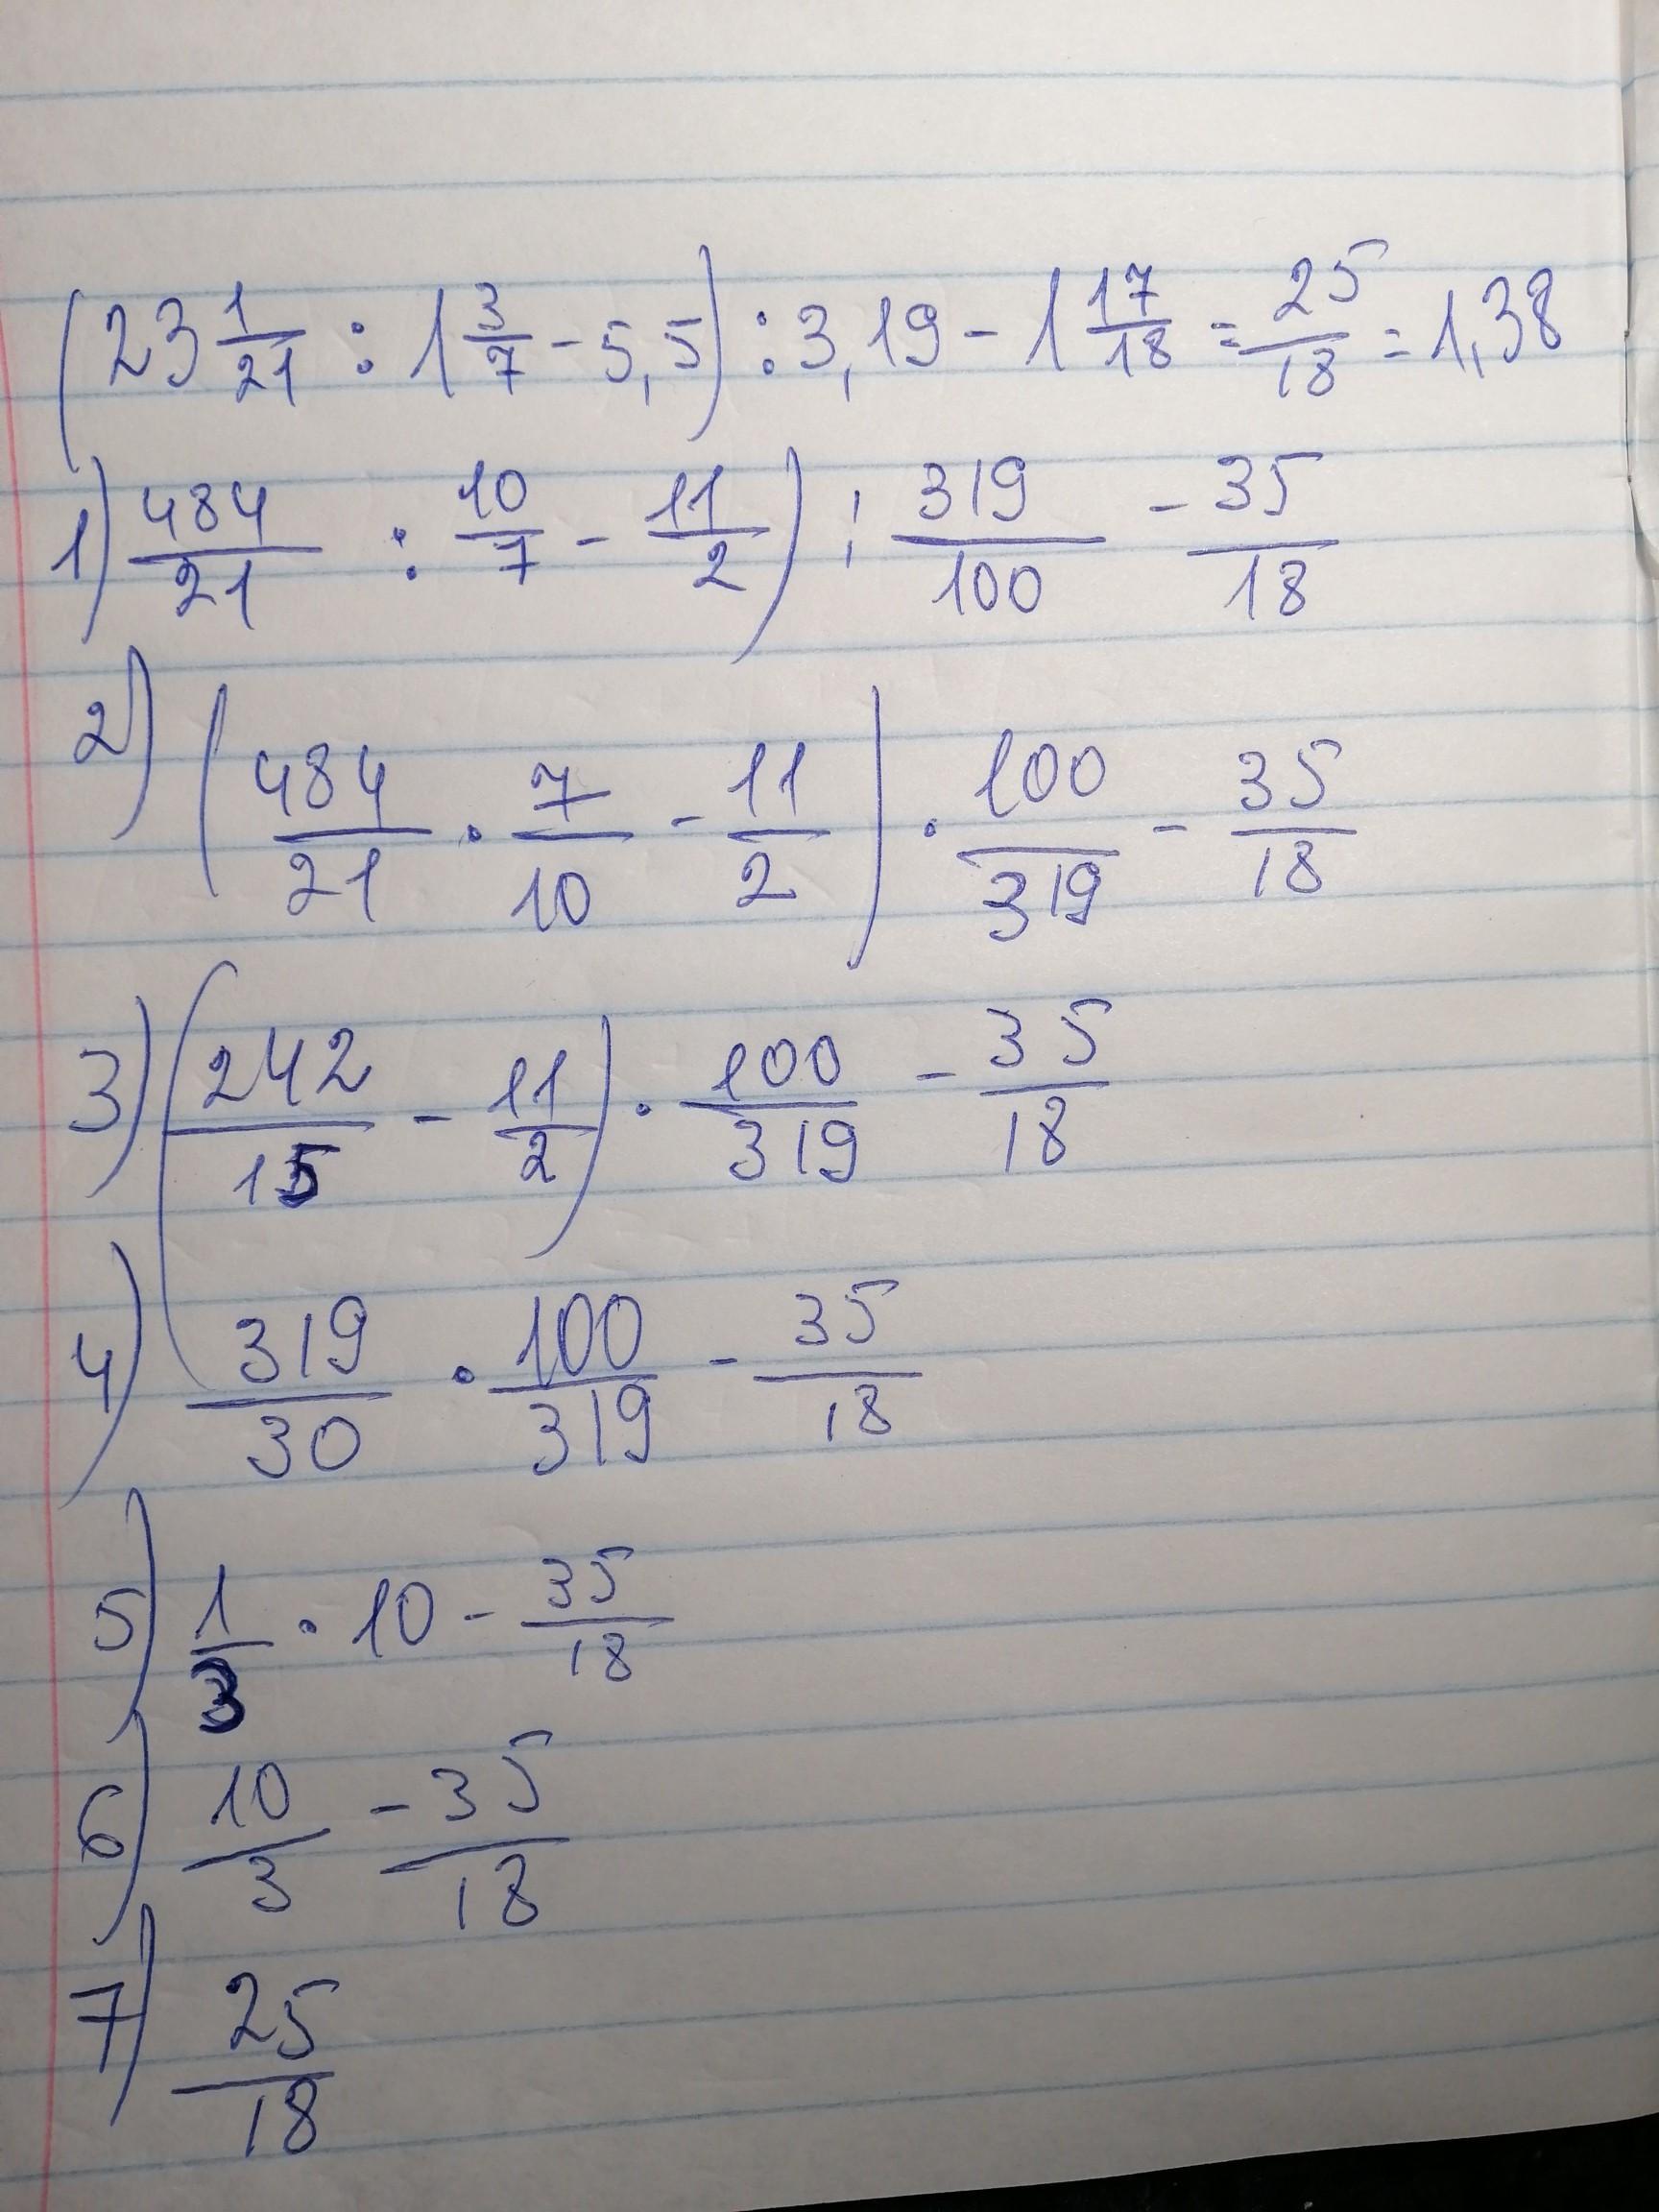 (23 1/21 : 1 3/7 - 5,5) : 3,19 - 1 17/18 = 25/18 = 1,38
1) 484/21 : 10/7 - 11/2) : 319/100 - 35/18
2) (484/21 · 7/10 - 11/2) · 100/319 - 35/18
3) (242/15 - 11/2) · 100/319 - 35/18
4) 319/30 · 100/319 - 35/18
5) 1/3 · 10 - 35/18
6) 10/3 - 35/18
7) 25/18